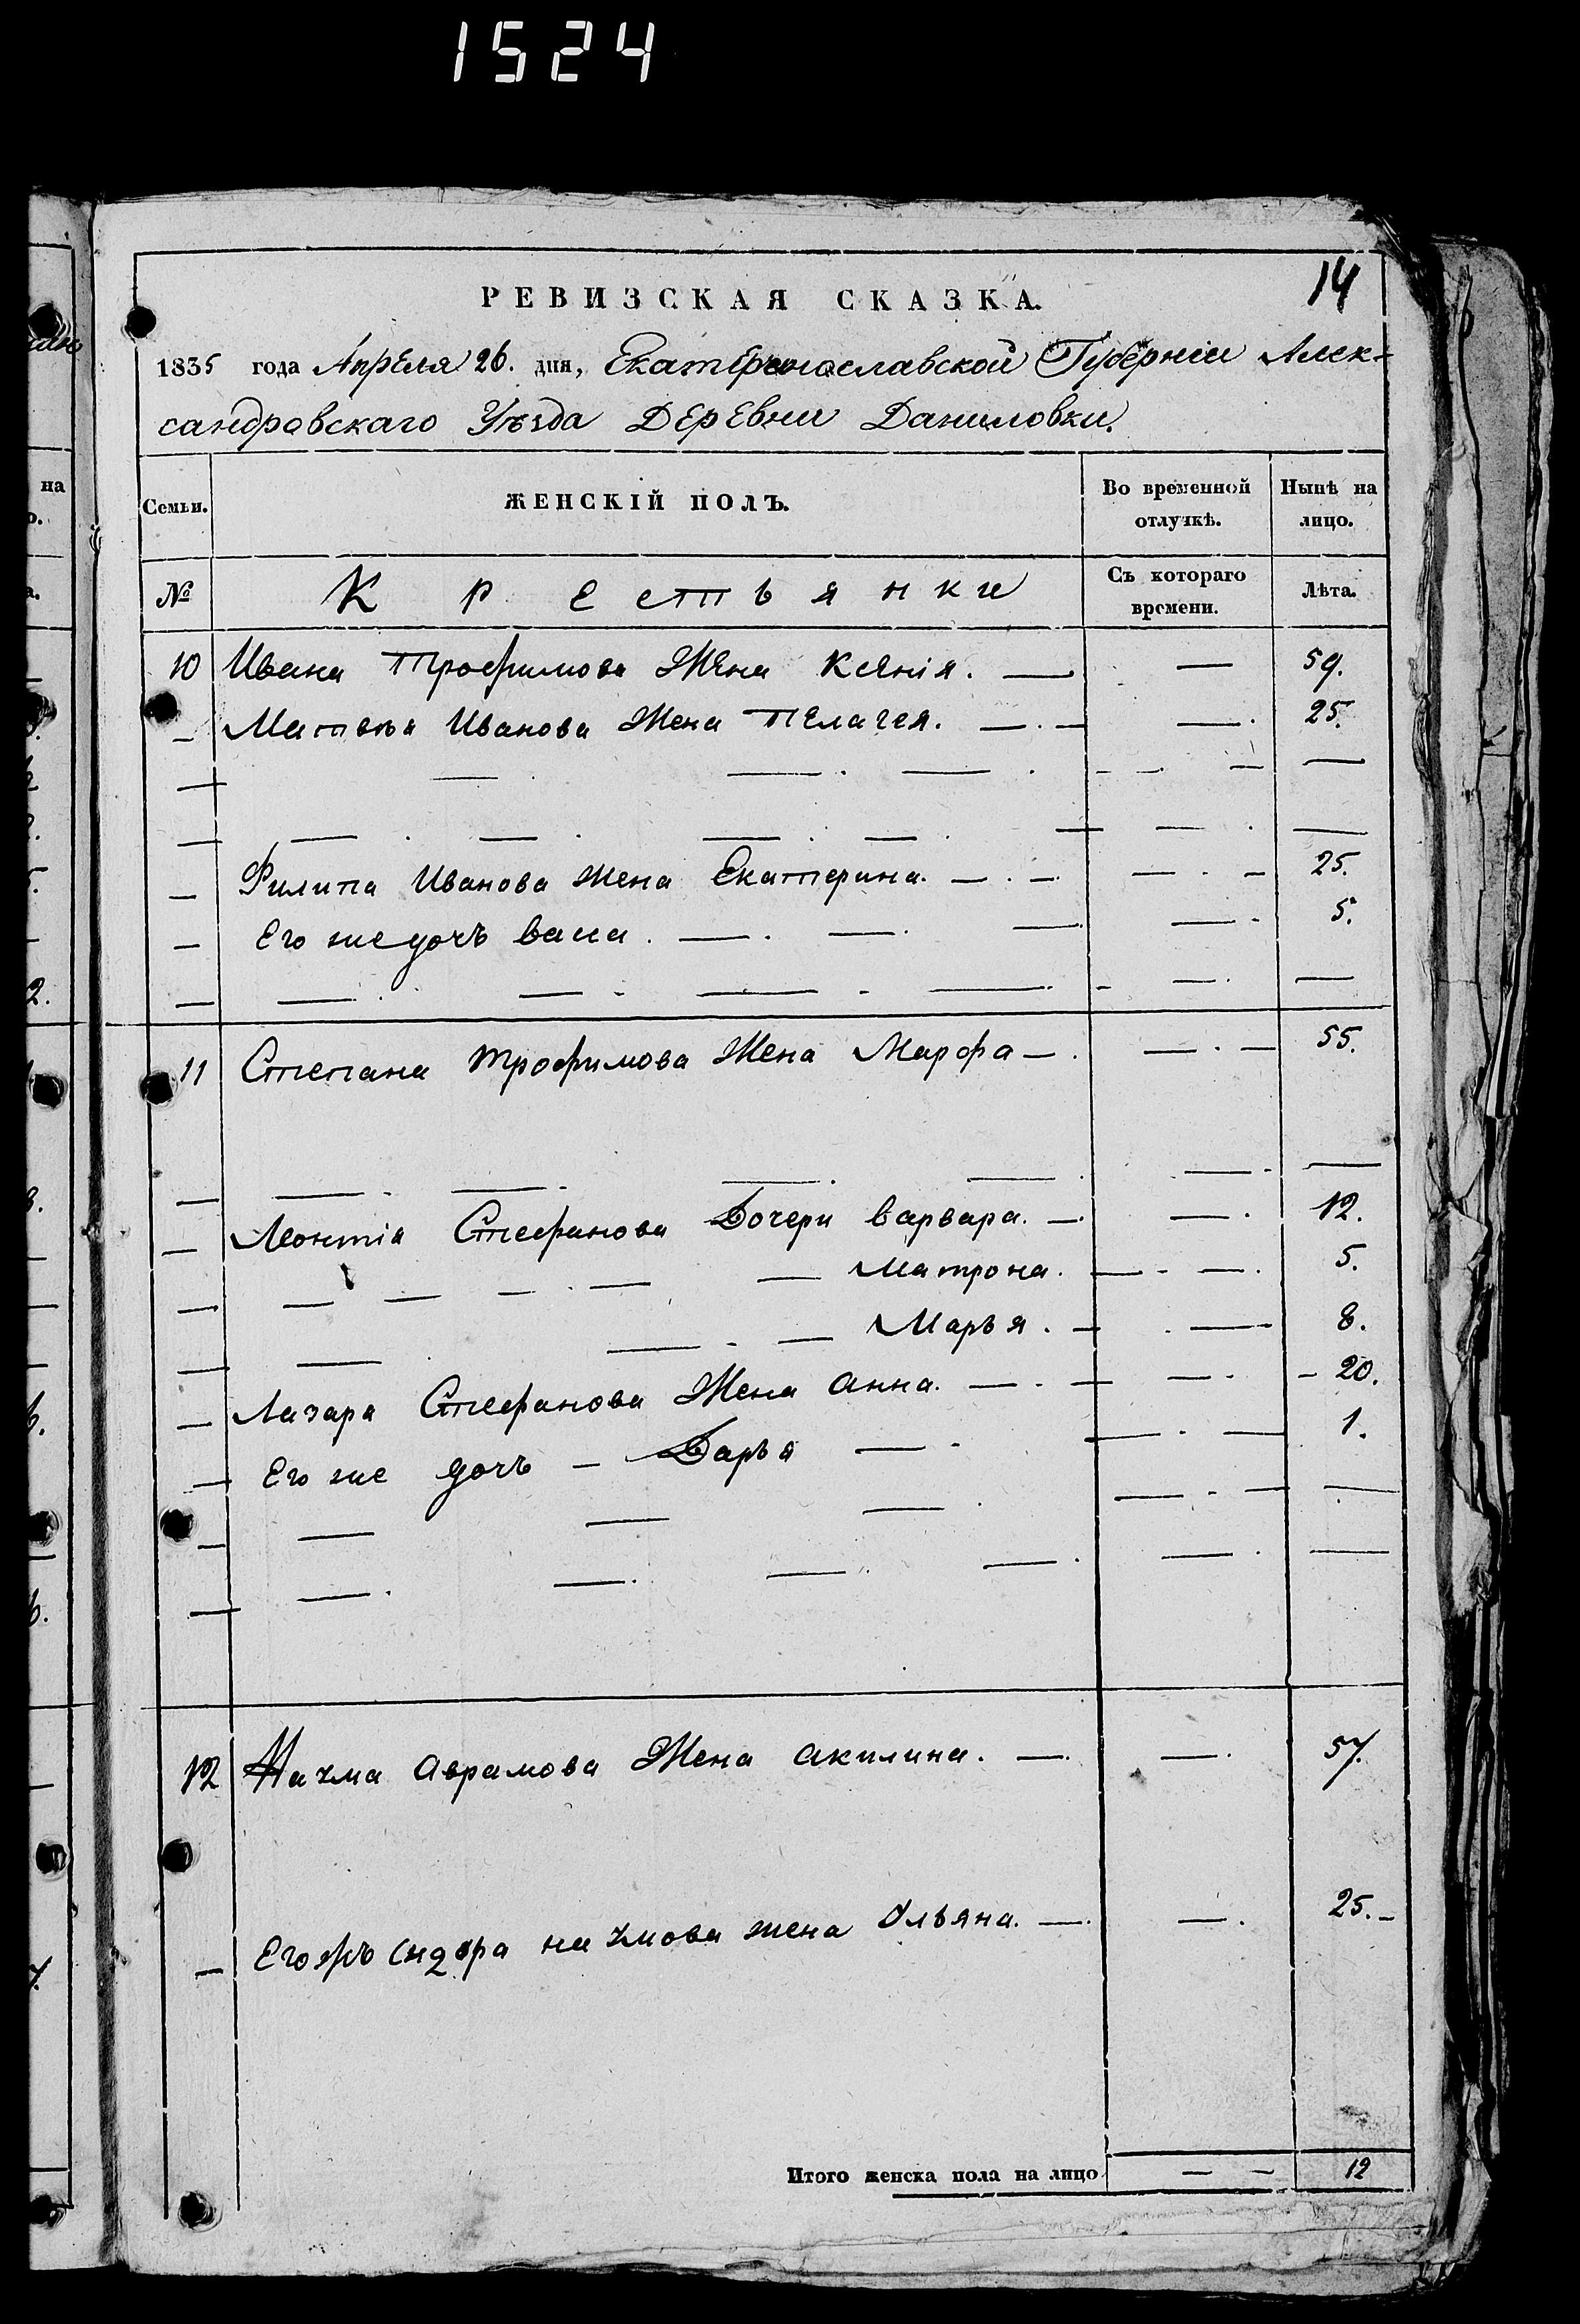 1524
14
РЕВИЗСКАЯ СКАЗКА.
1835 года Апреля 26. дня, Екатеринославской Губерніи Алек-
сандровскаго Уѣзда Деревни Даниловки.
Семьи.
ЖЕНСКІЙ ПОЛЪ.
Во временной отлучкѣ.
Нынѣ на лицо.
№
Крестьянки
Съ котораго времени.
Лѣта.
10 Ивана Трофимова Жена Ксенія. — — 59.
— Матвѣя Иванова Жена Пелагея. — . — — . 25.
— Филипа Иванова Жена Екатерина. — . — — . — 25.
— Его же дочь Васа . — . — . — — . 5.
11 Степана Трофимова Жена Марфа — . — . — 55.
— Леонтія Стефанова Дочери Варвара. — . — . 12.
— Матрона. — . — . 5.
— Марья . — . — 8.
— Лазара Стефанова Жена Анна. — . — — . 20.
— Его же дочь — Дарья — . — . — 1.
12 Наума Аврамова Жена Акилина. — . — . 57.
— Сидора Наумова жена Ульяна. — . — . 25.
Итого женска пола на лицо — — 12
на
2.